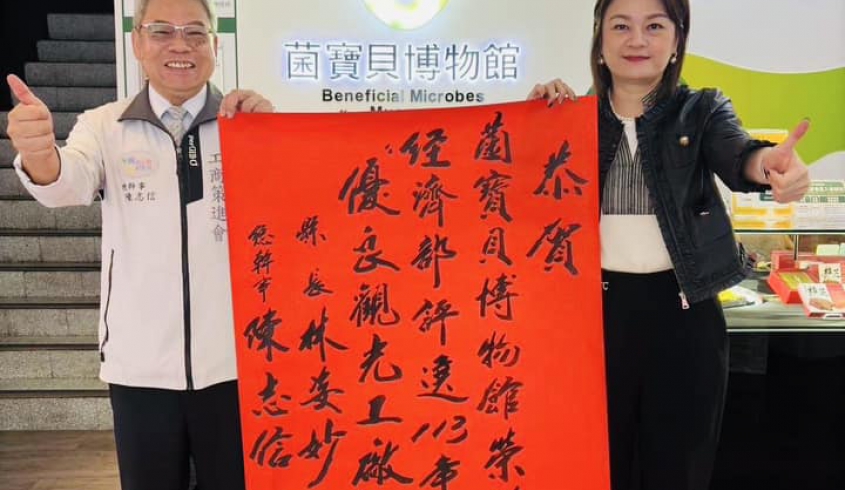 菌寶貝博物館
Beneficial Microbes
恭賀
菌寶貝博物館榮
經濟部評選113年
優良觀光工廠
縣長林姿妙
總幹事陳志信
工商策進會
總幹事
陳志信